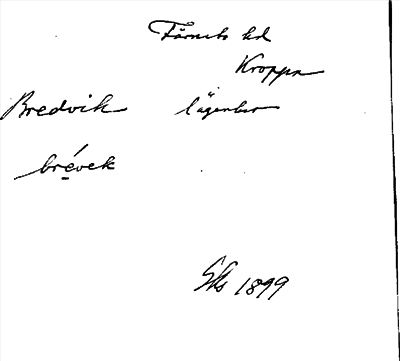 Färnebo hd
Kroppa
Bredvik lägenhet
brévek
Gks 1899